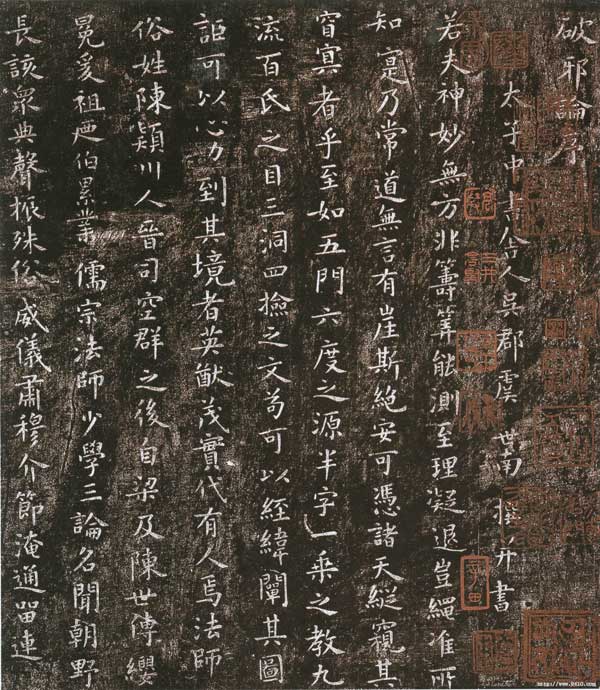 破邪論序
太子中書舍人吳郡虞世南撰并書
若夫神妙無方非籌筭能測至理凝退豈繩准所
知寔乃常道無言有崖斯絕安可憑諸天縱窺其
窅冥者乎至如五門六度之源半字一乘之教九
流百氏之目三洞四撿之文苟可以經緯闡其圖
詎可以心力到其境者英猷茂實代有人焉法師
俗姓陳潁川人晉司空群之後自梁及陳世傳纓
冕爰祖迺伯累業儒宗法師少學三論名聞朝野
長該眾典聲振殊俗威儀肅穆介節淹通留連
http://www.9610.com